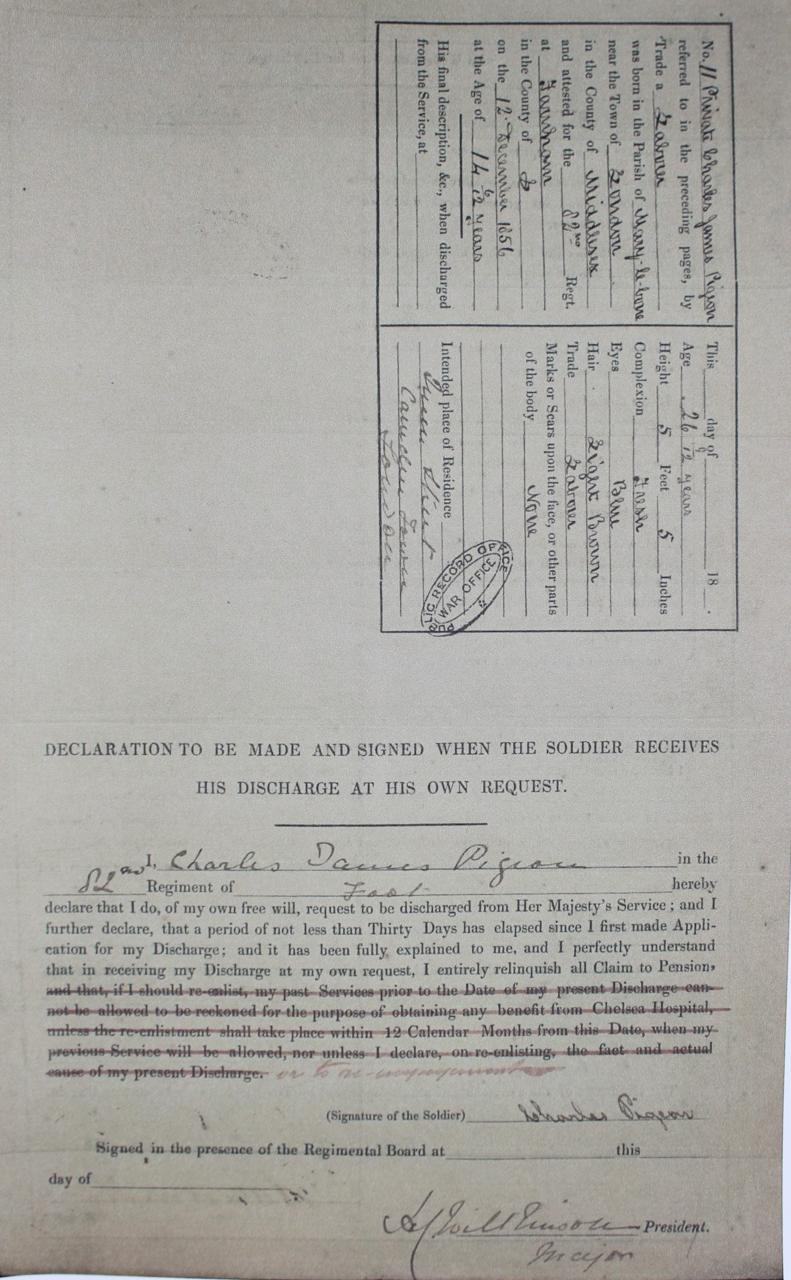 No. 11 Private Charles James Pigeon
referred to in the preceding pages, by
Trade a Labourer
was born in the Parish of Mary-le-bone
near the Town of London
in the County of Middlesex
and attested for the 82nd Regt.
at
in the County of
on the 12th December 1856
at the Age of 14 6/12 years
His final description, &c., when discharged
from the Service, at
This day of 18 .
Age 26 /12 years
Height 5 Feet 5 Inches
Complexion Fresh
Eyes Blue
Hair . Light Brown
Trade Labourer
Marks or Scars upon the face, or other parts
of the body None
Intended place of Residence
Street
Camden Town
London
PUBLIC RECORD OFFICE
WAR OFFICE
DECLARATION TO BE MADE AND SIGNED WHEN THE SOLDIER RECEIVES
HIS DISCHARGE AT HIS OWN REQUEST.
I, Charles James Pigeon in the
82nd Regiment of Foot hereby
declare that I do, of my own free will, request to be discharged from Her Majesty's Service; and I
further declare, that a period of not less than Thirty Days has elapsed since I first made Appli-
cation for my Discharge; and it has been fully explained to me, and I perfectly understand
that in receiving my Discharge at my own request, I entirely relinquish all Claim to Pension,
and that, if I should re-enlist, my past Services prior to the Date of my present Discharge can-
not be allowed to be reckoned for the purpose of obtaining any benefit from Chelsea Hospital,
unless the re-enlistment shall take place within 12 Calendar Months from this Date, when my
previous Service will be allowed, nor unless I declare, on re-enlisting, the fact and actual
cause of my present Discharge. or to re-engagement
(Signature of the Soldier) Charles Pigeon
Signed in the presence of the Regimental Board at this
day of
Wilkinson President.
Major